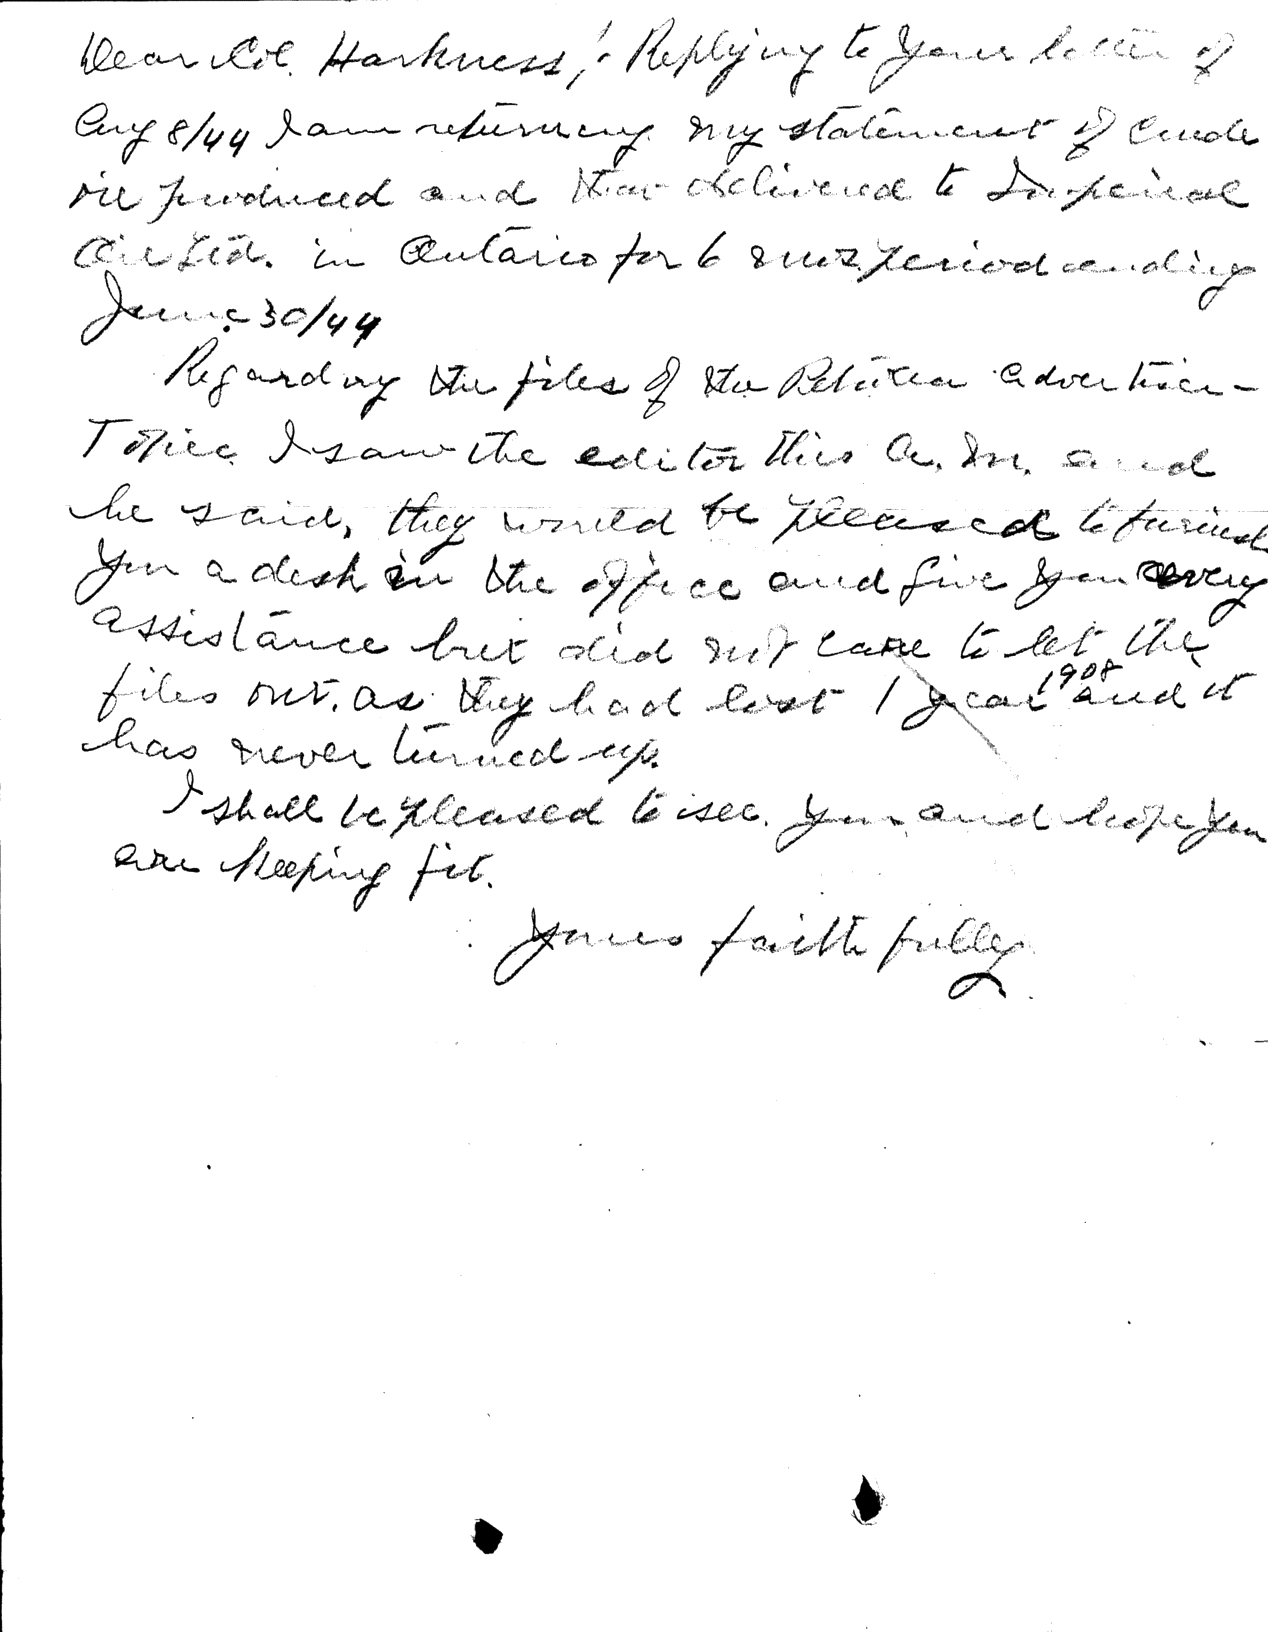 Dear Col. Harkness,! Replying to your letter of
Aug 8/44 I am returning my statement of crude
oil produced and that delivered to Imperial
Oil Ltd. in Ontario for 6 mos period ending
June 30/44
Regarding the files of the Petrolea Advertiser-
Topic I saw the editor this A.M. and
he said, they would be pleased to furnish
you a desk in the office and give you every
assistance but did not care to let the
files out. as they had lost 1 year 1908 and it
has never turned up.
I shall be pleased to see you and hope you
are keeping fit.
Yours faithfully